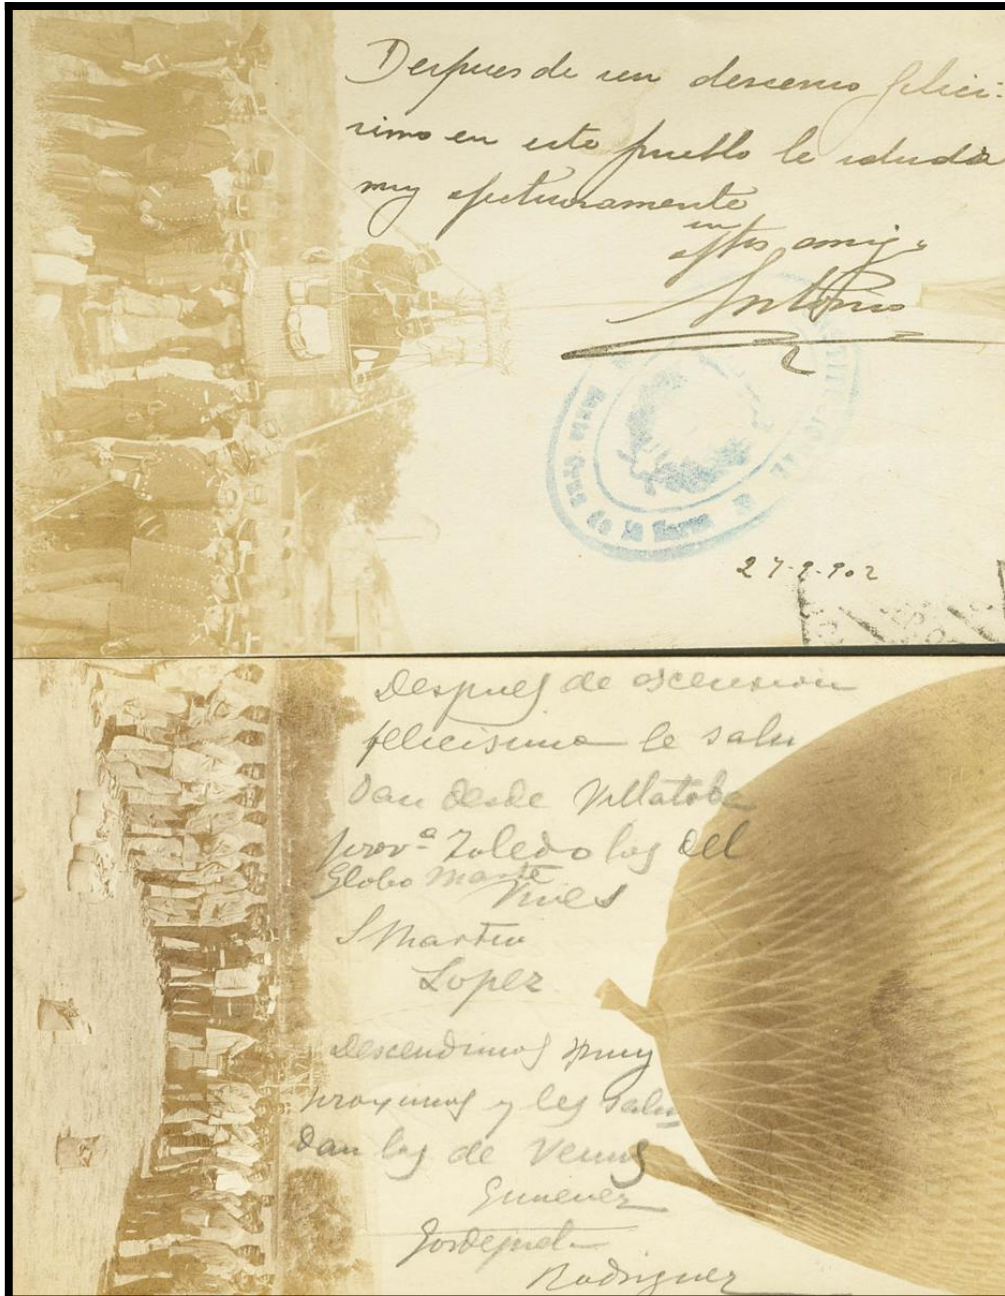 Despues de un descenso felici-
simo en este pueblo le saluda
muy afectuosamente
su
affmo amigo
Antonio
Santa Cruz de la Zarza
27-9-902
Despues de ascension
felicisima le salu
dan desde Villatobas
provª Toledo los del
Globo Marte
Vives
S Martin
Lopez
Descendimos muy
proximos y les salu
dan los de Venus
Gimenez
Gordejuela
Rodriguez